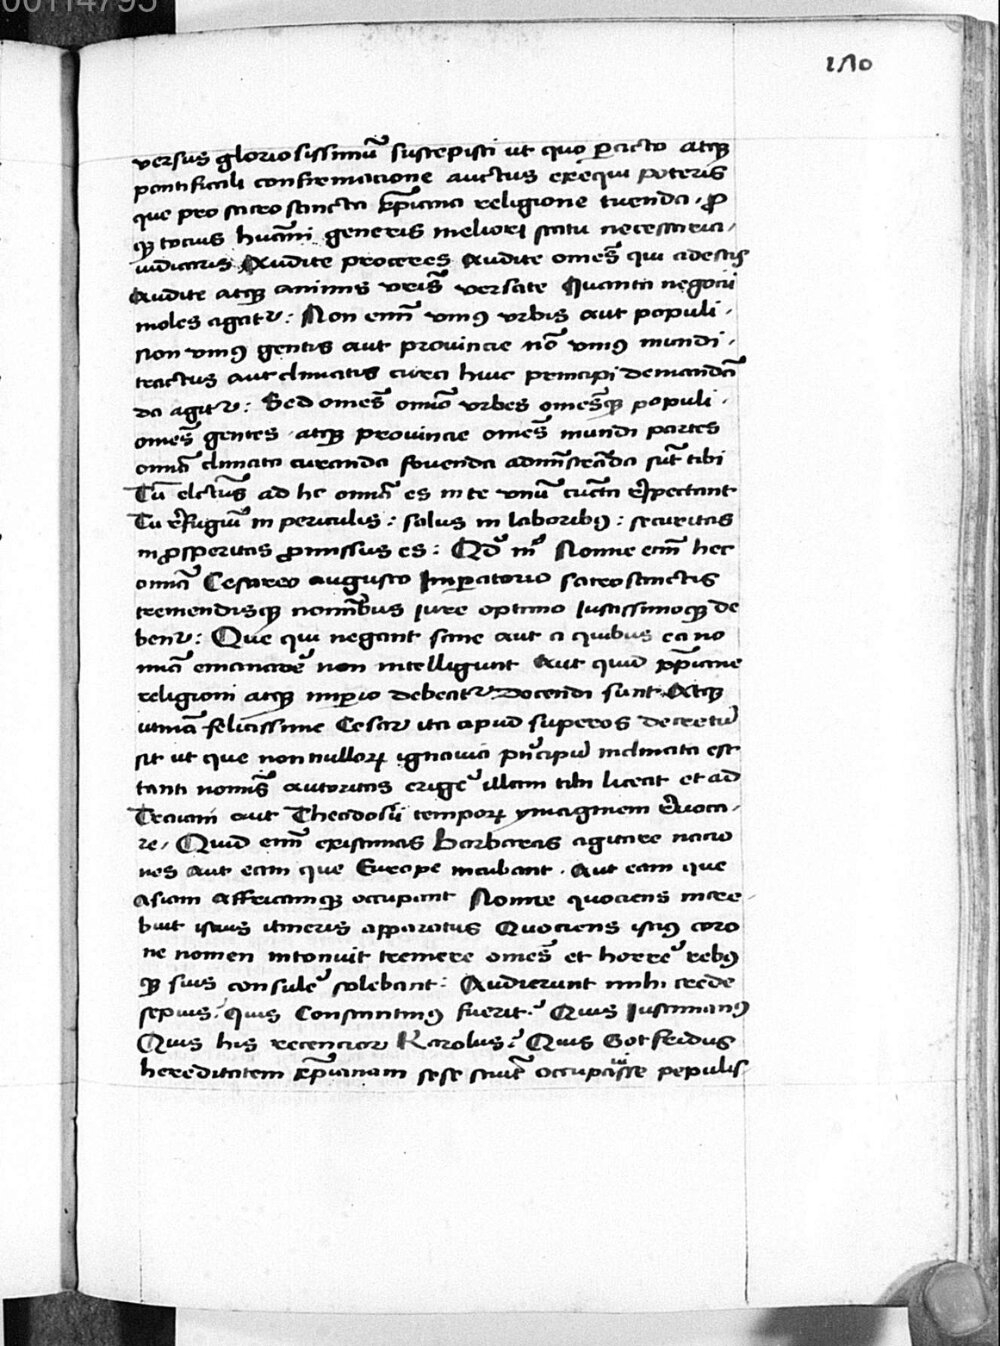 00114795
170
versus gloriosissimū suscepisti ut quo ꝑacto atqꝫ
pontificali confirmacione auctus exequi poteris
que pro sacrosancta xp̄iana religione tuenda / ꝓ
qꝫ tocius hūani generis meliori statu necessaria /
iudicaris Audite proceres Audite omēs qui adestis
Audite atqꝫ animis vr̄is versate Quanta negocii
moles agatᷣ : Non enī vniꝰ vrbis aut populi ·
Non vniꝰ gentis aut prouincie nō vniꝰ mundi ·
tractus aut climatis cura huic principi demandā
da agitᷣ : Sed omēs omīa vrbes omēsqꝫ populi ·
omēs gentes · atqꝫ prouincie omēs mundi partes
omīa climata curanda fouenda admīstrāda sūt tibi
Tu electus ad hec omīa es in te vnū cūcta r̄spectant
Tu r̄fugiū in periculis : salus in laboribꝰ : securitas
in ꝓsperitas ꝓmissus es : Qd' nī Nonne enī hec
omīa Cesareo augusto Imꝑatorio sacrosanctis
tremendisqꝫ nomībus iure optimo iustissimoqꝫ de
benᷣ : Que qui negant sane aut a quibus ea no
mīa emanauēᷣ non intelligunt Aut quid xp̄iane
religioni atqꝫ imꝑio debeatᷣ docendi sunt Atqꝫ
utinā felicissime Cesar ita apud superos decretū
sit ut que nonnullorꝝ ignauia pᷣncipū inclinata est
tanti nomīs autoritas erigeᷣ illam tibi liceat et ad
Traiani aut Theodosii temporꝝ ymaginem r̄uoca /
re / Quid enī existimas Barbaras agitare nacio
nes aut eam que Europe incubant · Aut eam que
asiam affricamqꝫ occupant Nonne quociens incre /
buit istius itineris apparatus Quociens istiꝰ coro
ne nomen intonuit tremere omēs et horreᷣ rebꝰ
qꝫ suis consuleᷣ solebant : Audierunt mihi crede
sepius / quis Constantinꝰ fuerit ·ᷣ Quis Iustinianꝰ
Quis his recencior Karolus ? Quis Gotfridus
hereditatem xp̄ianam sese sciūt occupasse populis